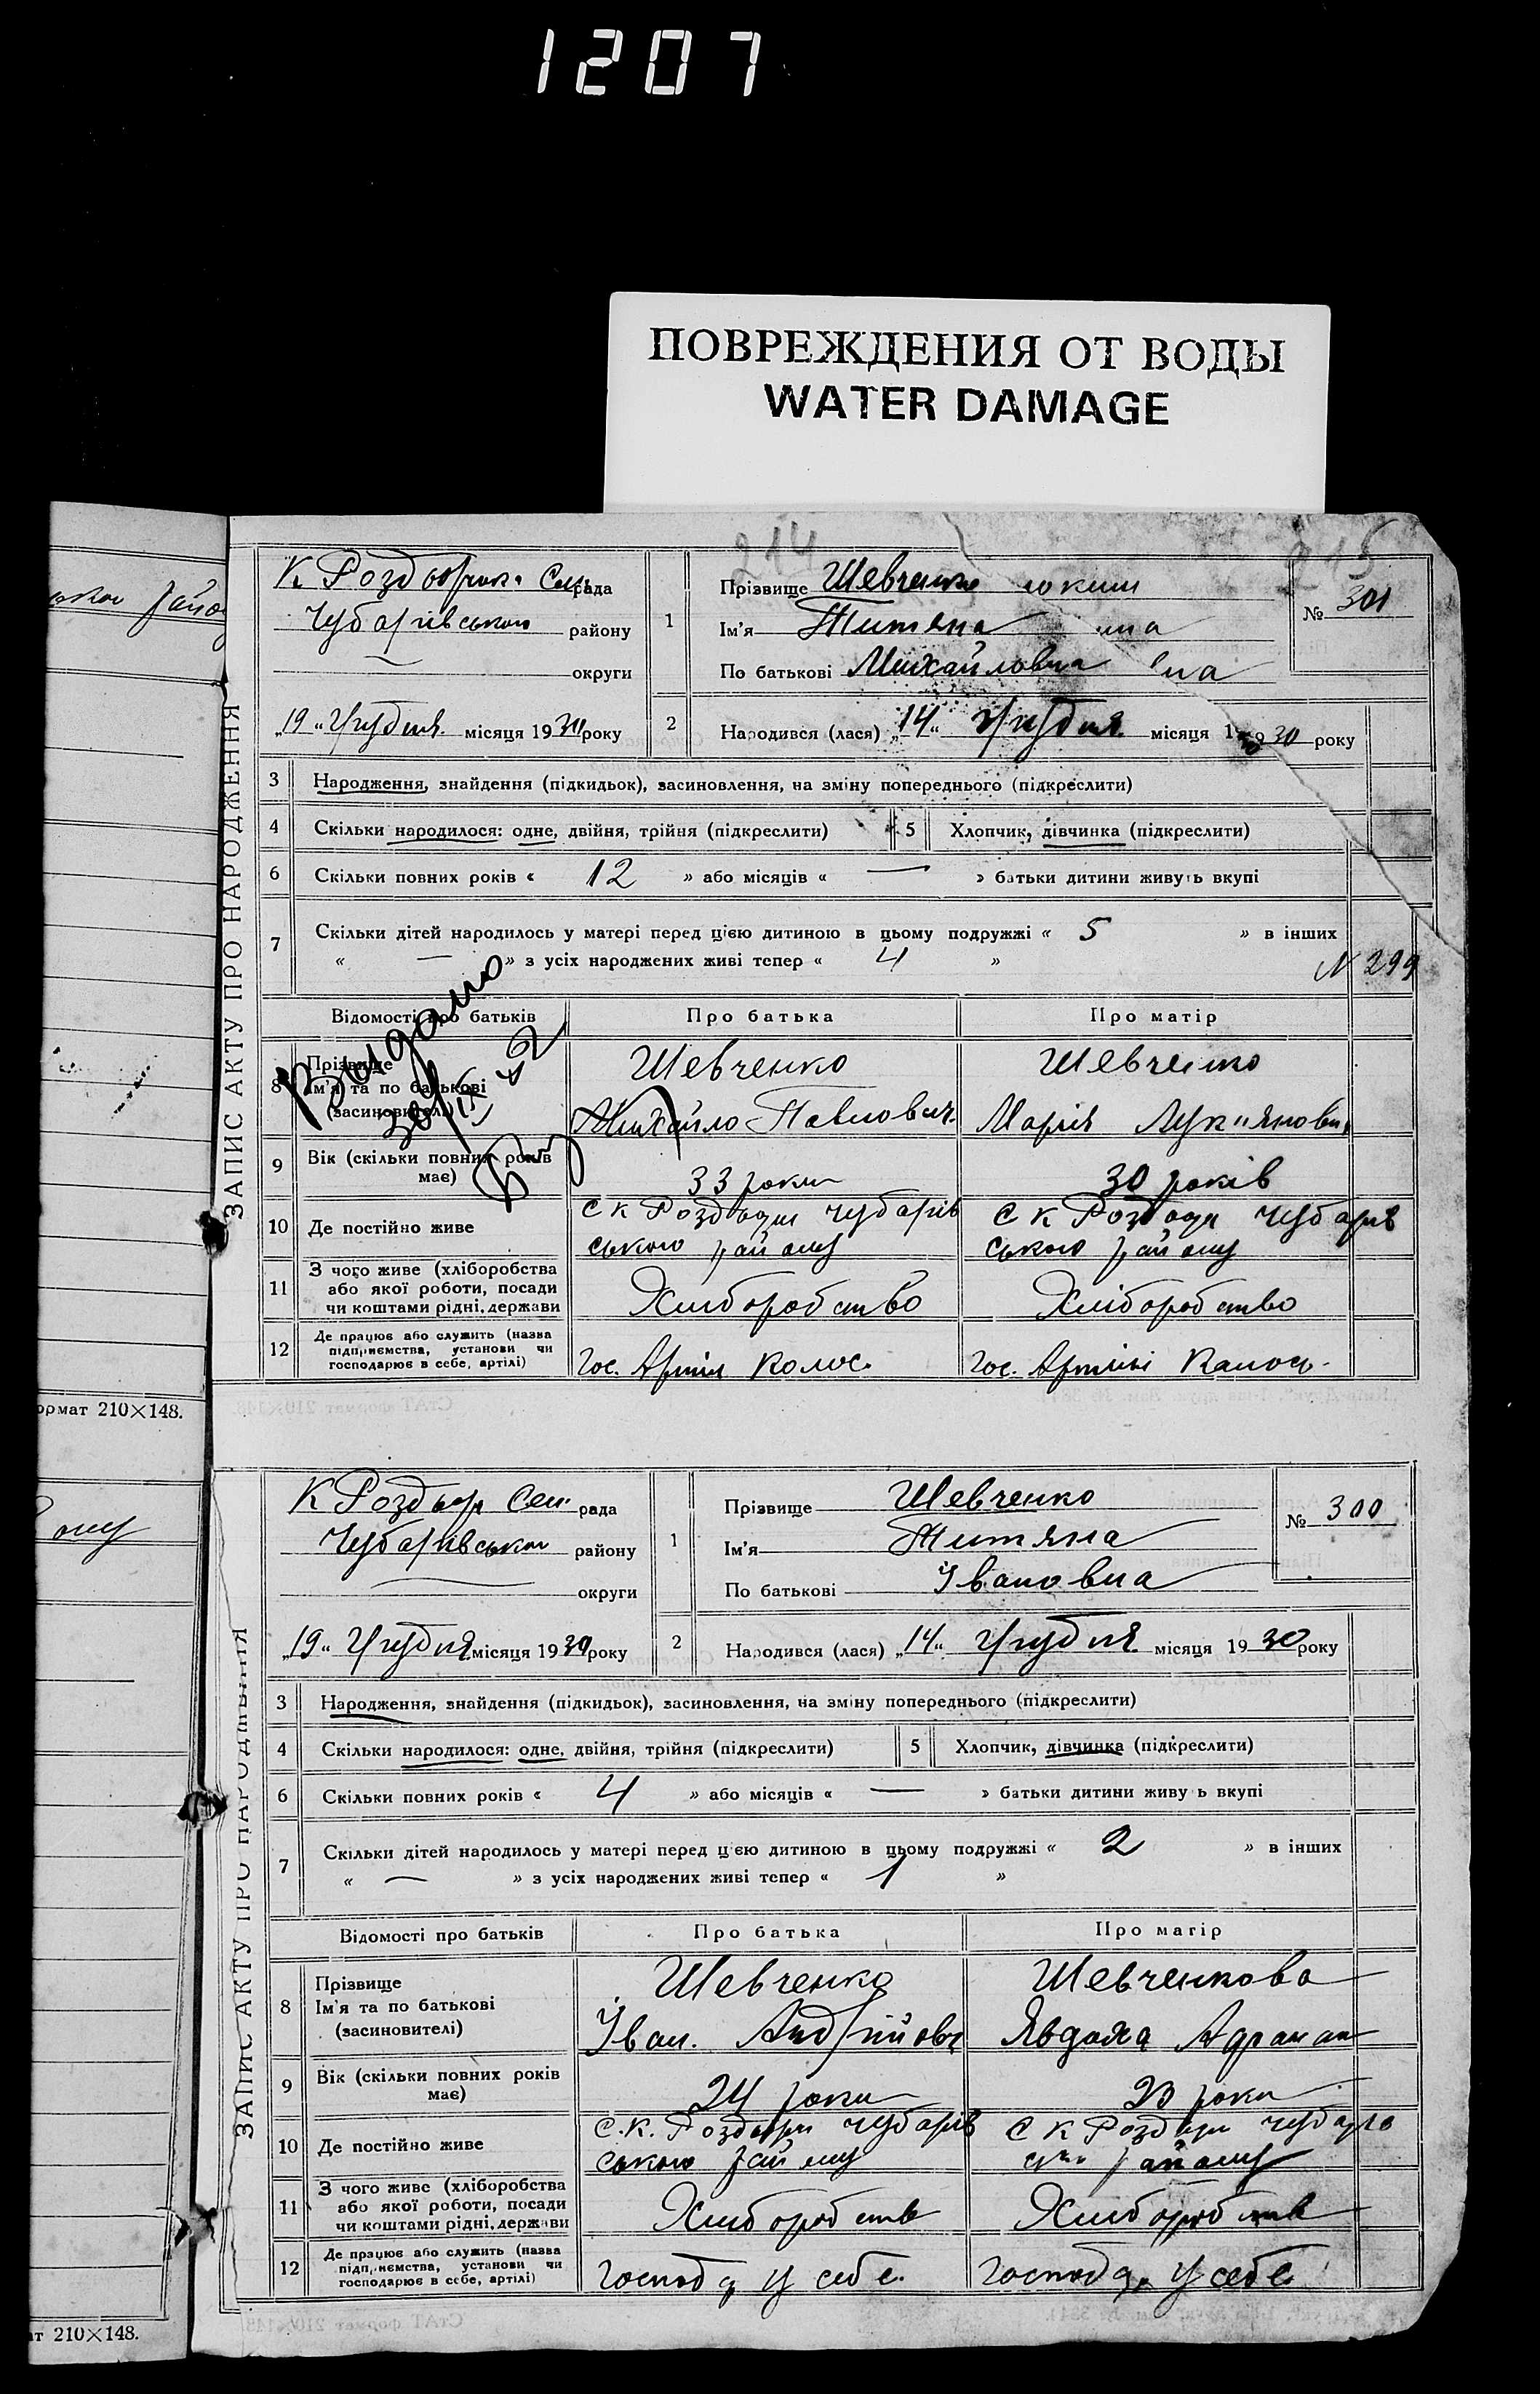 1207
ПОВРЕЖДЕНИЯ ОТ ВОДЫ
WATER DAMAGE
214 215
ЗАПИС АКТУ ПРО НАРОДЖЕННЯ
рада
Чубарівського району
округи
„19„ Грудня місяця 1930 року
1 Прізвище Шевченко
Ім'я Титяна
По батькові Михайловна
№ 301
2 Народився (лася) „14„ Грудня місяця 1930 року
3 Народження, знайдення (підкидьок), засиновлення, на зміну попереднього (підкреслити)
4 Скільки народилося: одне, двійня, трійня (підкреслити) 5 Хлопчик, дівчинка (підкреслити)
6 Скільки повних років « 12 » або місяців « — » батьки дитини живуть вкупі
7 Скільки дітей народилось у матері перед цією дитиною в цьому подружжі « 5 » в інших
« — » з усіх народжених живі тепер « 4 »
N 299
Видано
Відомості про батьків Про батька Про матір
8 Прізвище Шевченко Шевченко
Ім'я та по батькові
(засиновителі) Михайло Павлович Марія
9 Вік (скільки повних років має) 33 роки 30 років
10 Де постійно живе С К Чубарів С К Чубарів
ського району ського району
11 З чого живе (хліборобства
або якої роботи, посади
чи коштами рідні, держави Хліборобство Хліборобство
12 Де працює або служить (назва
підприємства, установи чи
господарює в себе, артілі) Гос. Колос Гос.
ормат 210×148.
ЗАПИС АКТУ ПРО НАРОДЖЕННЯ
рада
Чубарівськом району
округи
„19„ Грудня місяця 1930 року
1 Прізвище Шевченко
Ім'я Титяна
По батькові Івановна
№ 300
2 Народився (лася) „14„ Грудня місяця 1930 року
3 Народження, знайдення (підкидьок), засиновлення, на зміну попереднього (підкреслити)
4 Скільки народилося: одне, двійня, трійня (підкреслити) 5 Хлопчик, дівчинка (підкреслити)
6 Скільки повних років « 4 » або місяців « — » батьки дитини живу ь вкупі
7 Скільки дітей народилось у матері перед цією дитиною в цьому подружжі « 2 » в інших
« — » з усіх народжених живі тепер « 1 »
Відомості про батьків Про батька Про матір
8 Прізвище Шевченко Шевченкова
Ім'я та по батькові
(засиновителі) Іван. Явдоха
9 Вік (скільки повних років має) 24 роки 23 роки
10 Де постійно живе С.К. Чубарів С К
ського району району
11 З чого живе (хліборобства
або якої роботи, посади
чи коштами рідні, держави Хліборобств Хліборобств
12 Де працює або служить (назва
підприємства, установи чи
господарює в себе, артілі) у себе. у себе
ат 210×148.